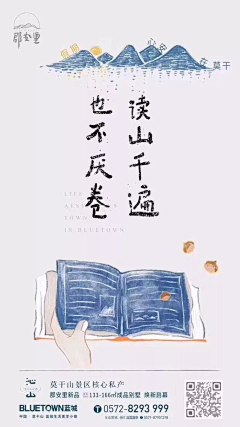 郡安里
心安在莫干
读山千遍
也不厌卷
IN BLUETOWN
沁山
莫干山景区核心私产
郡安里新品 133-166㎡成品别墅 焕新启幕
BLUETOWN蓝城
0572-8293 999